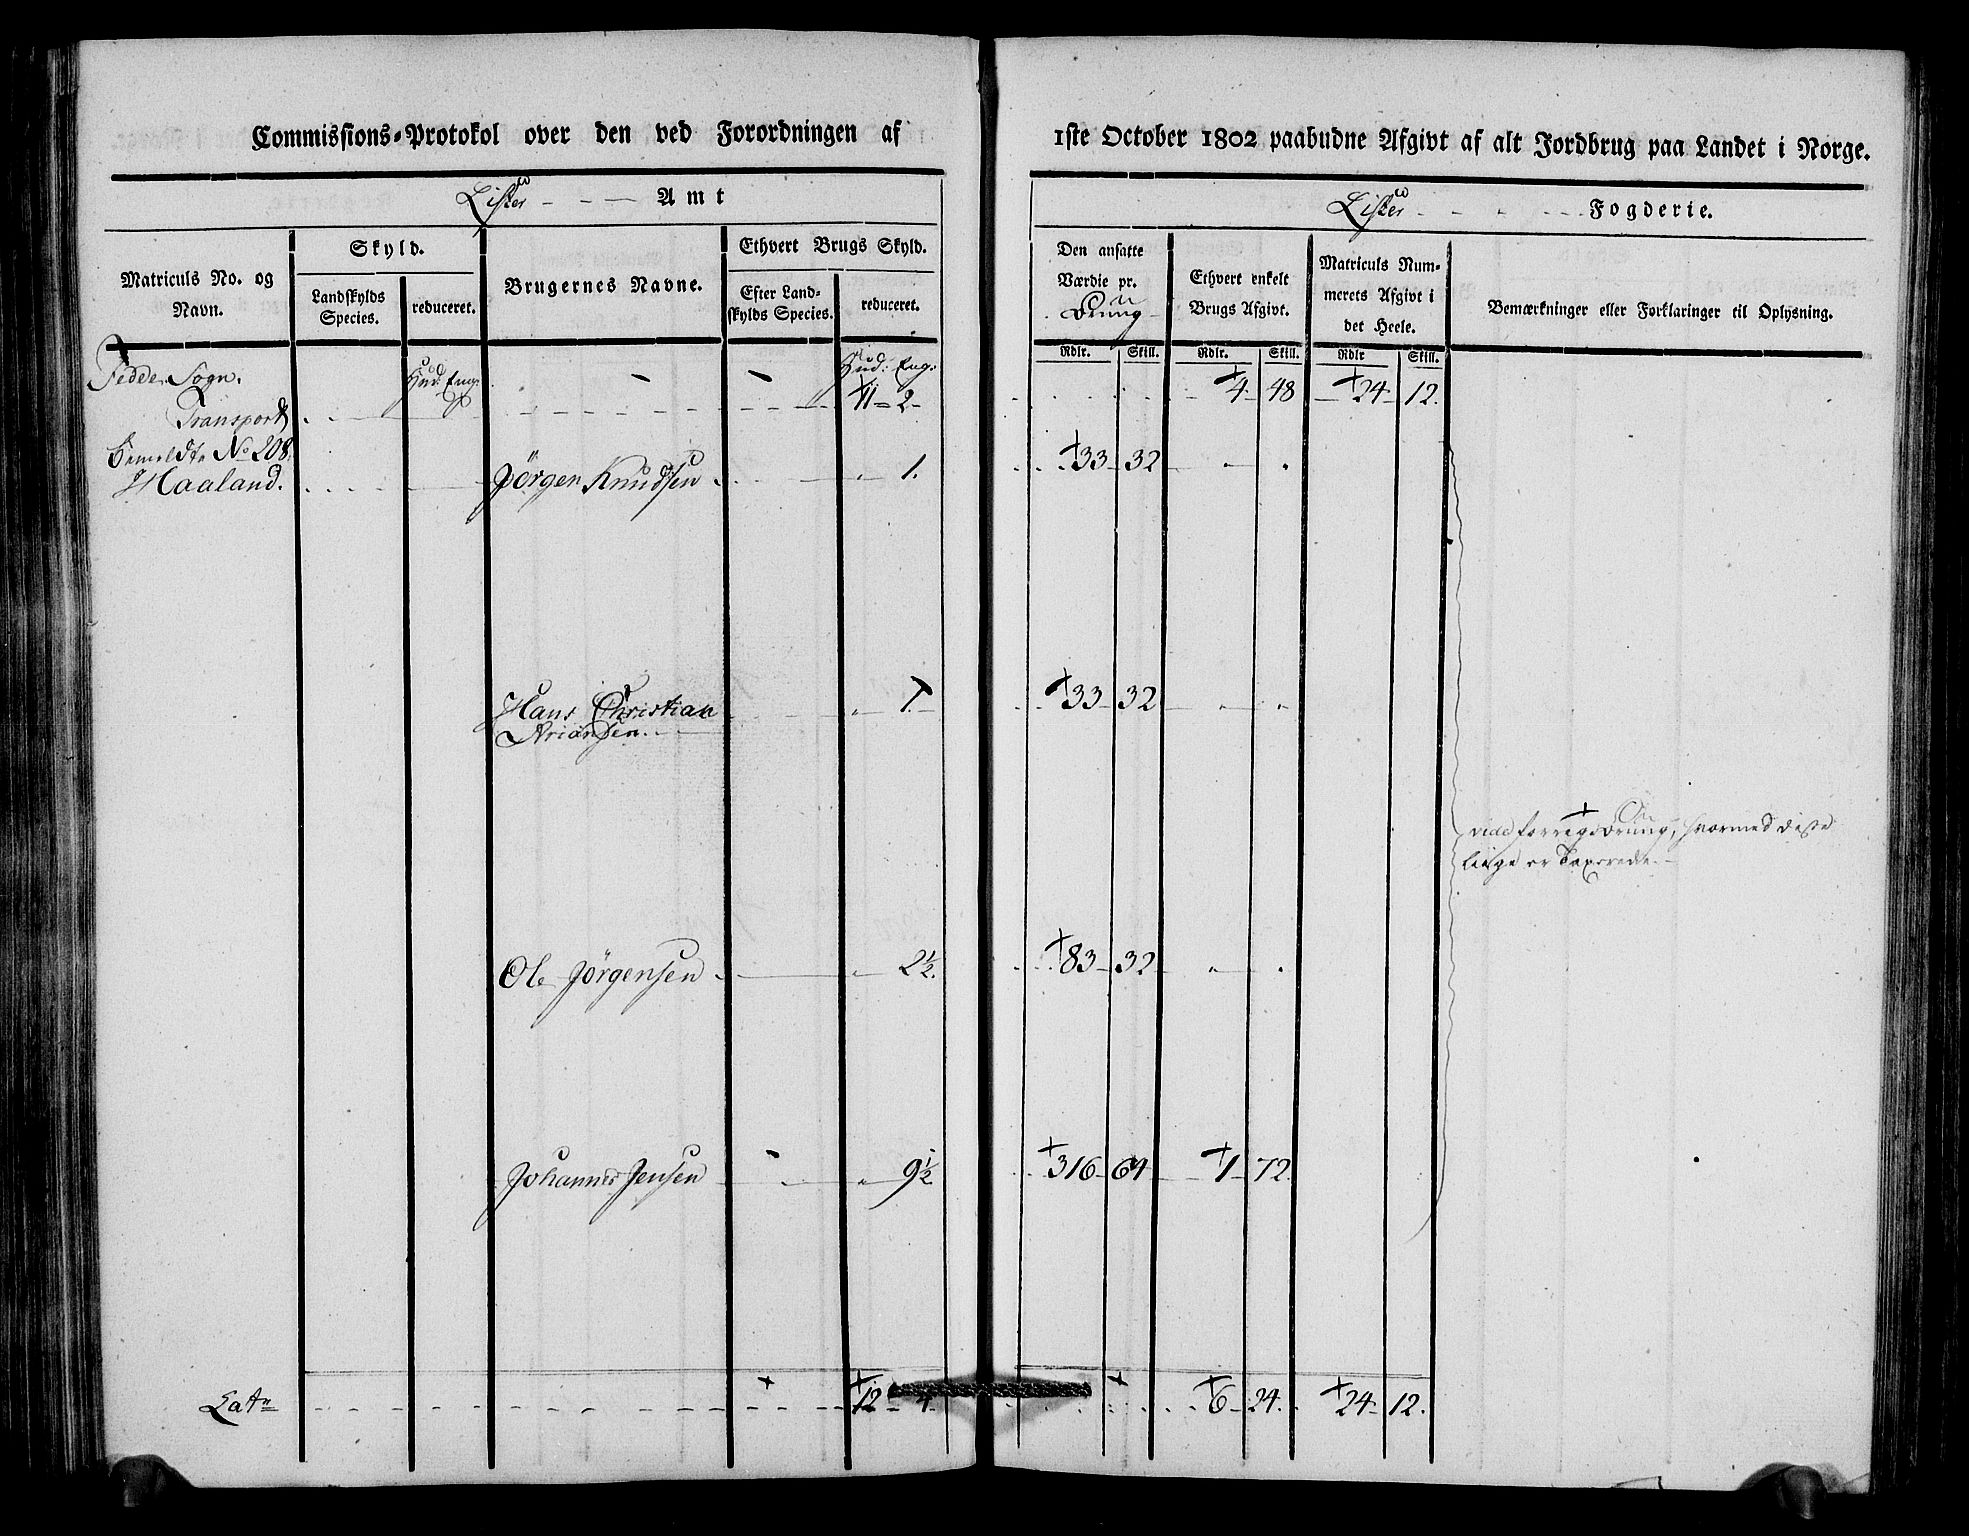 Commissions-Protokol over den ved Forordningen af
1ste October 1802 paabudne Afgivt af alt Jordbrug paa Landet i Norge.
Lister - - - Amt
Lister - - - Fogderie.
Matriculs No. og
Navn.
Skyld.
Landskylds
Species.
reduceret.
Brugernes Navne.
Ethvert Brugs Skyld.
Efter Land-
skylds Species.
reduceret.
Den ansatte
Værdie pr.
Ethvert enkelt
Brugs Afgivt.
Matriculs Num-
merets Afgivt i
det Heele.
Bemærkninger eller Forklaringer til Oplysning.
Rdlr. Skill. Rdlr. Skill. Rdlr Skill.
Fedde Sogn. Hud: Eng: Hud: Eng:
Transport 11 - 2 - 4 - 48 - 24 - 12.
bemeldte No 208.
Haaland. Jörgen Knudsen 1. 33 - 32
Hans Christian 1. 33 - 32
Ariansen.
vide forrige , hvormed disse
liige er Taxerede. -
Ole Jörgensen 2½. 83 - 32
Johannes Jensen 9½ 316 - 64 1 - 72.
Lat 12 - 4. 6 - 24. 24 - 12.